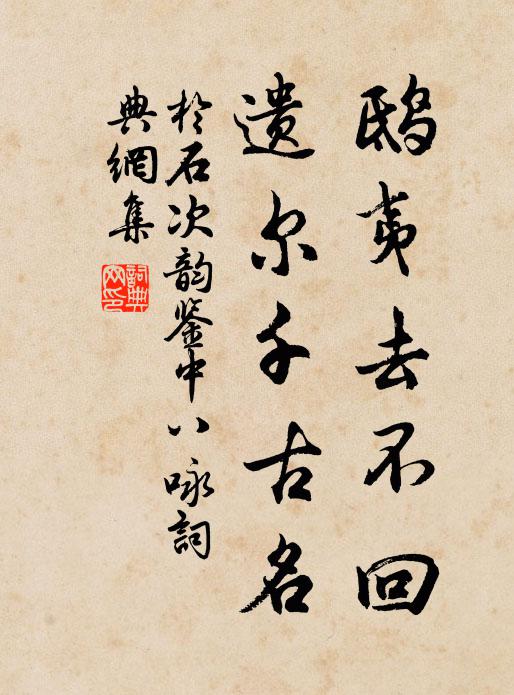 鸱夷去不回
遗尔千古名
於石次韵鉴中八咏词
典網集
詞典
网印